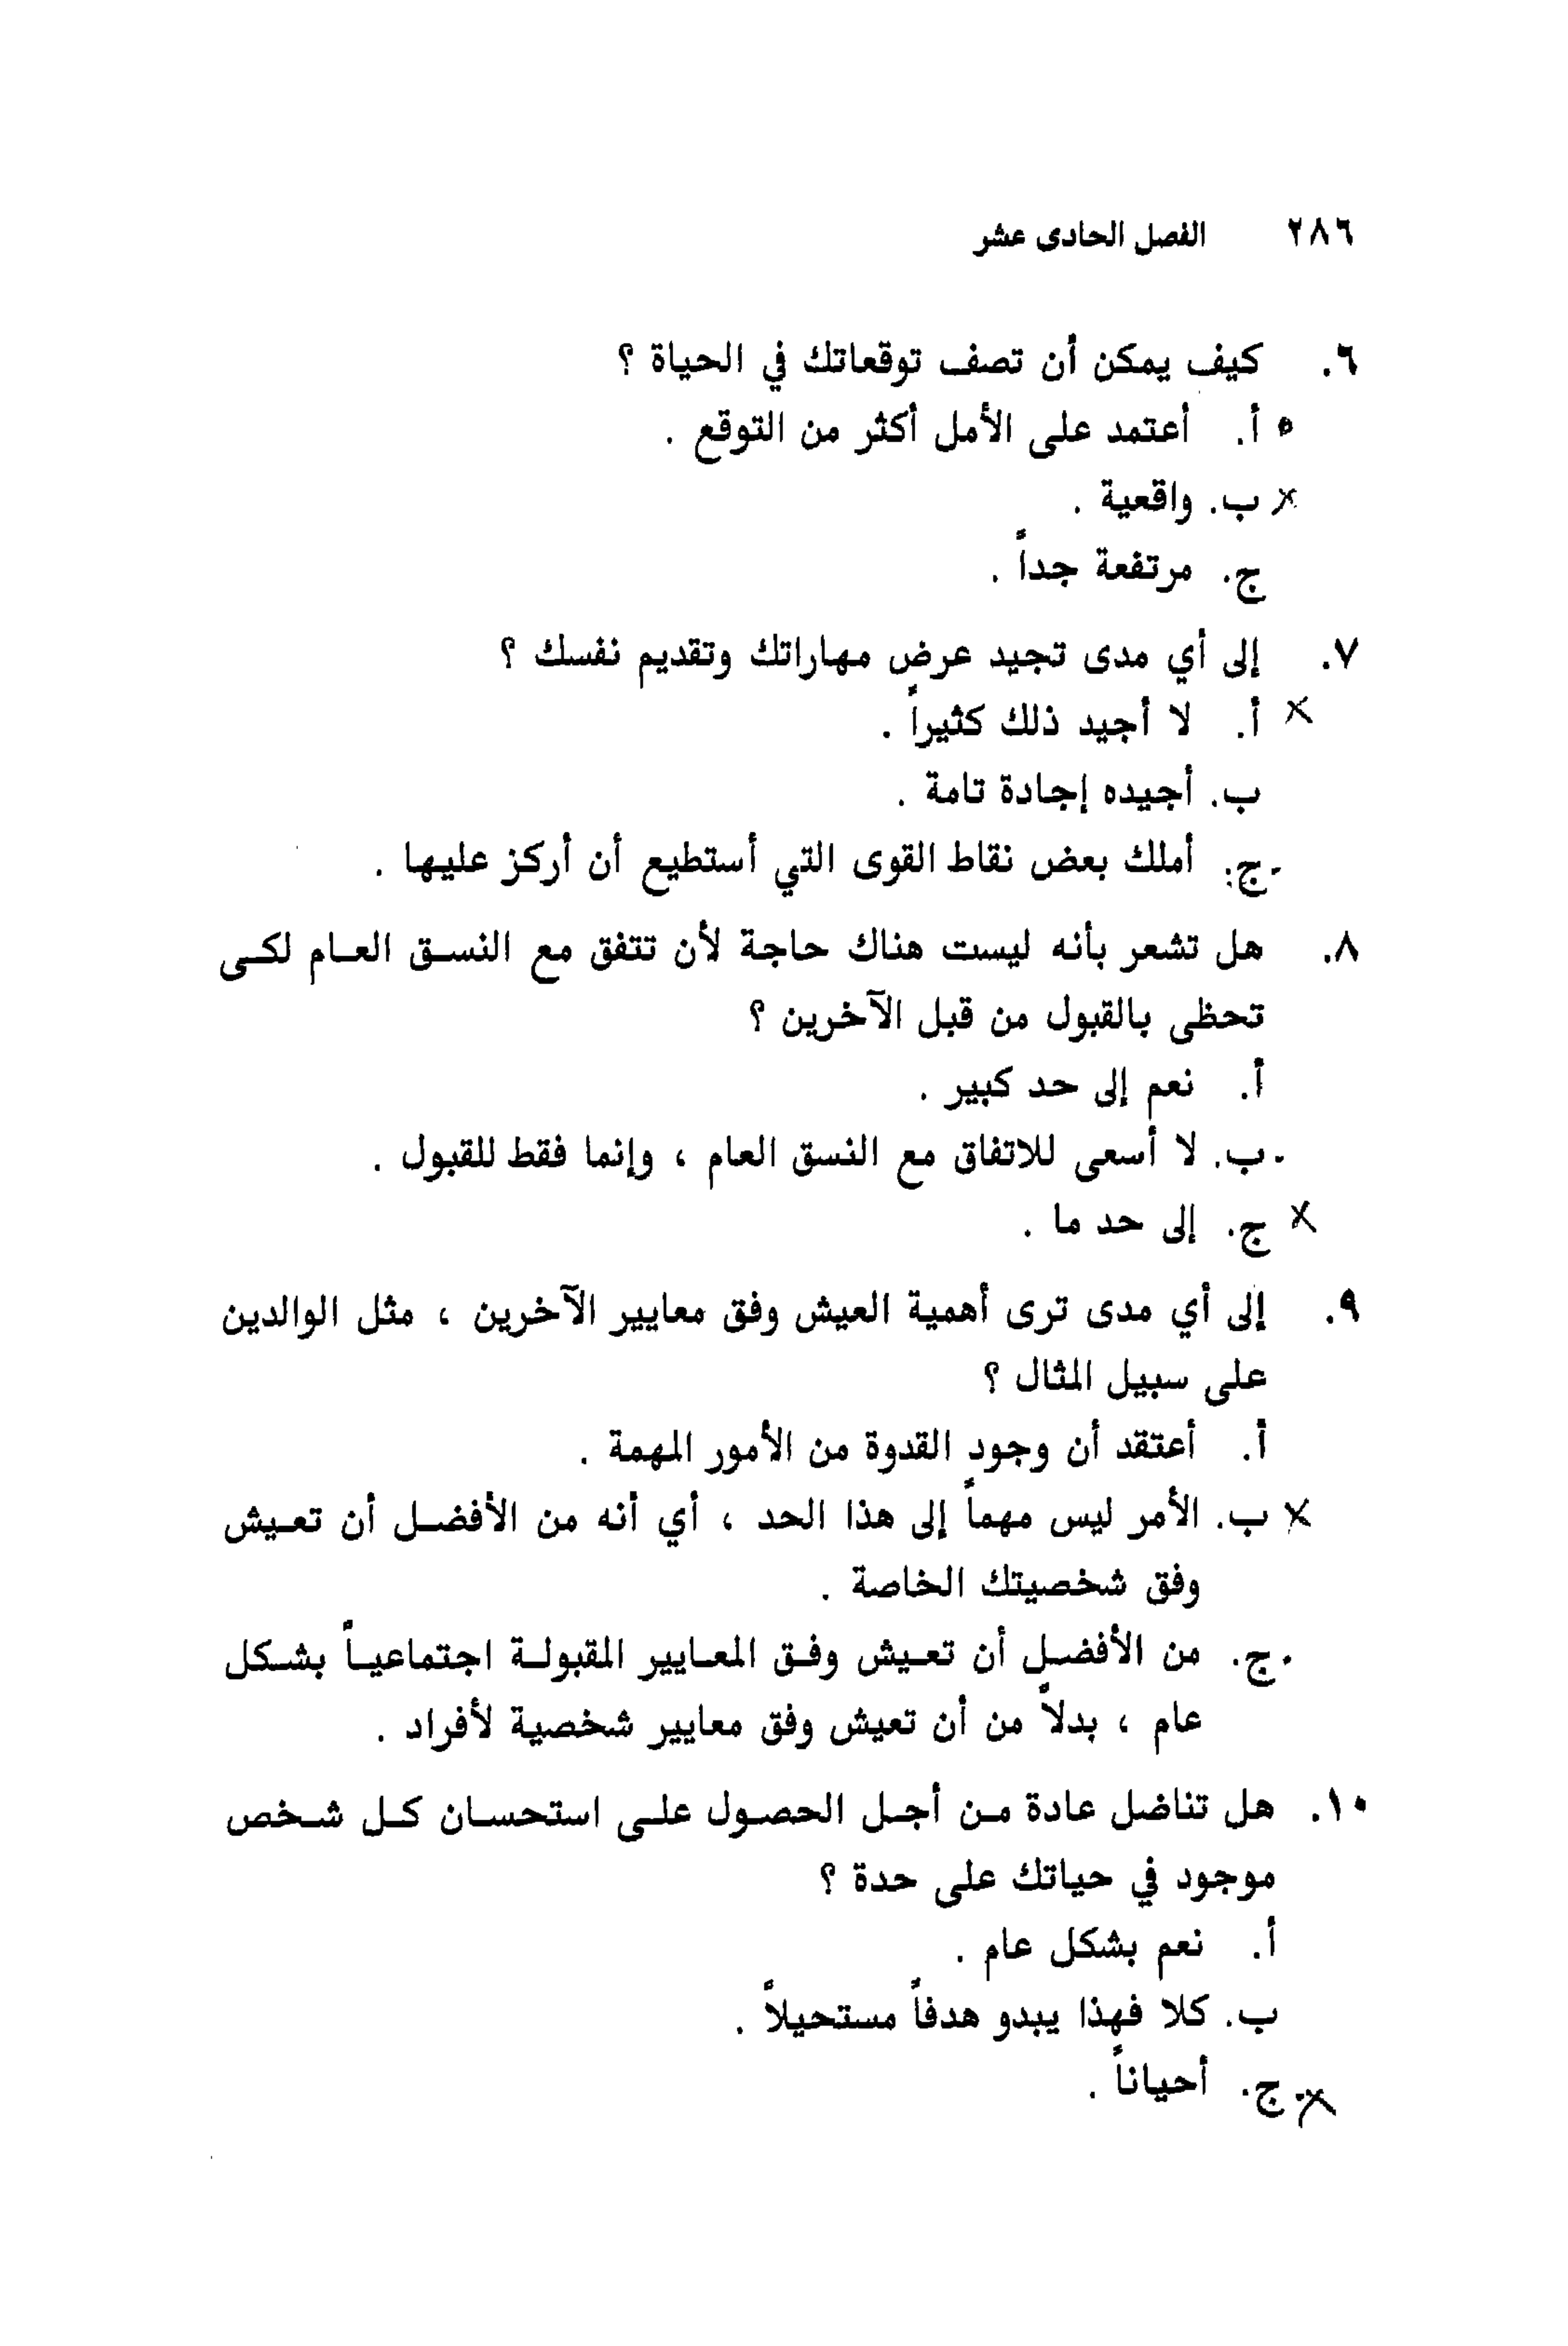 ٢٨٦ الفصل الحادى عشر
٦. كيف يمكن أن تصف توقعاتك في الحياة ؟
• أ. أعتمد على الأمل أكثر من التوقع .
× ب. واقعية .
ج. مرتفعة جداً .
٧. إلى أي مدى تجيد عرض مهاراتك وتقديم نفسك ؟
× أ. لا أجيد ذلك كثيراً .
ب. أجيده إجادة تامة .
ج. أملك بعض نقاط القوى التي أستطيع أن أركز عليها .
٨. هل تشعر بأنه ليست هناك حاجة لأن تتفق مع النسـق العـام لكـى
تحظى بالقبول من قبل الآخرين ؟
أ. نعم إلى حد كبير .
ب. لا أسعى للاتفاق مع النسق العام ، وإنما فقط للقبول .
× ج. إلى حد ما .
٩. إلى أي مدى ترى أهمية العيش وفق معايير الآخرين ، مثل الوالدين
على سبيل المثال ؟
أ. أعتقد أن وجود القدوة من الأمور المهمة .
× ب. الأمر ليس مهماً إلى هذا الحد ، أي أنه من الأفضـل أن تعـيش
وفق شخصيتك الخاصة .
ج. من الأفضـل أن تعـيش وفـق المعـايير المقبولـة اجتماعيـاً بشـكل
عام ، بدلاً من أن تعيش وفق معايير شخصية لأفراد .
١٠. هل تناضل عادة مـن أجـل الحصـول علـى استحسـان كـل شـخص
موجود في حياتك على حدة ؟
أ. نعم بشكل عام .
ب. كلا فهذا يبدو هدفاً مستحيلاً .
× ج. أحياناً .